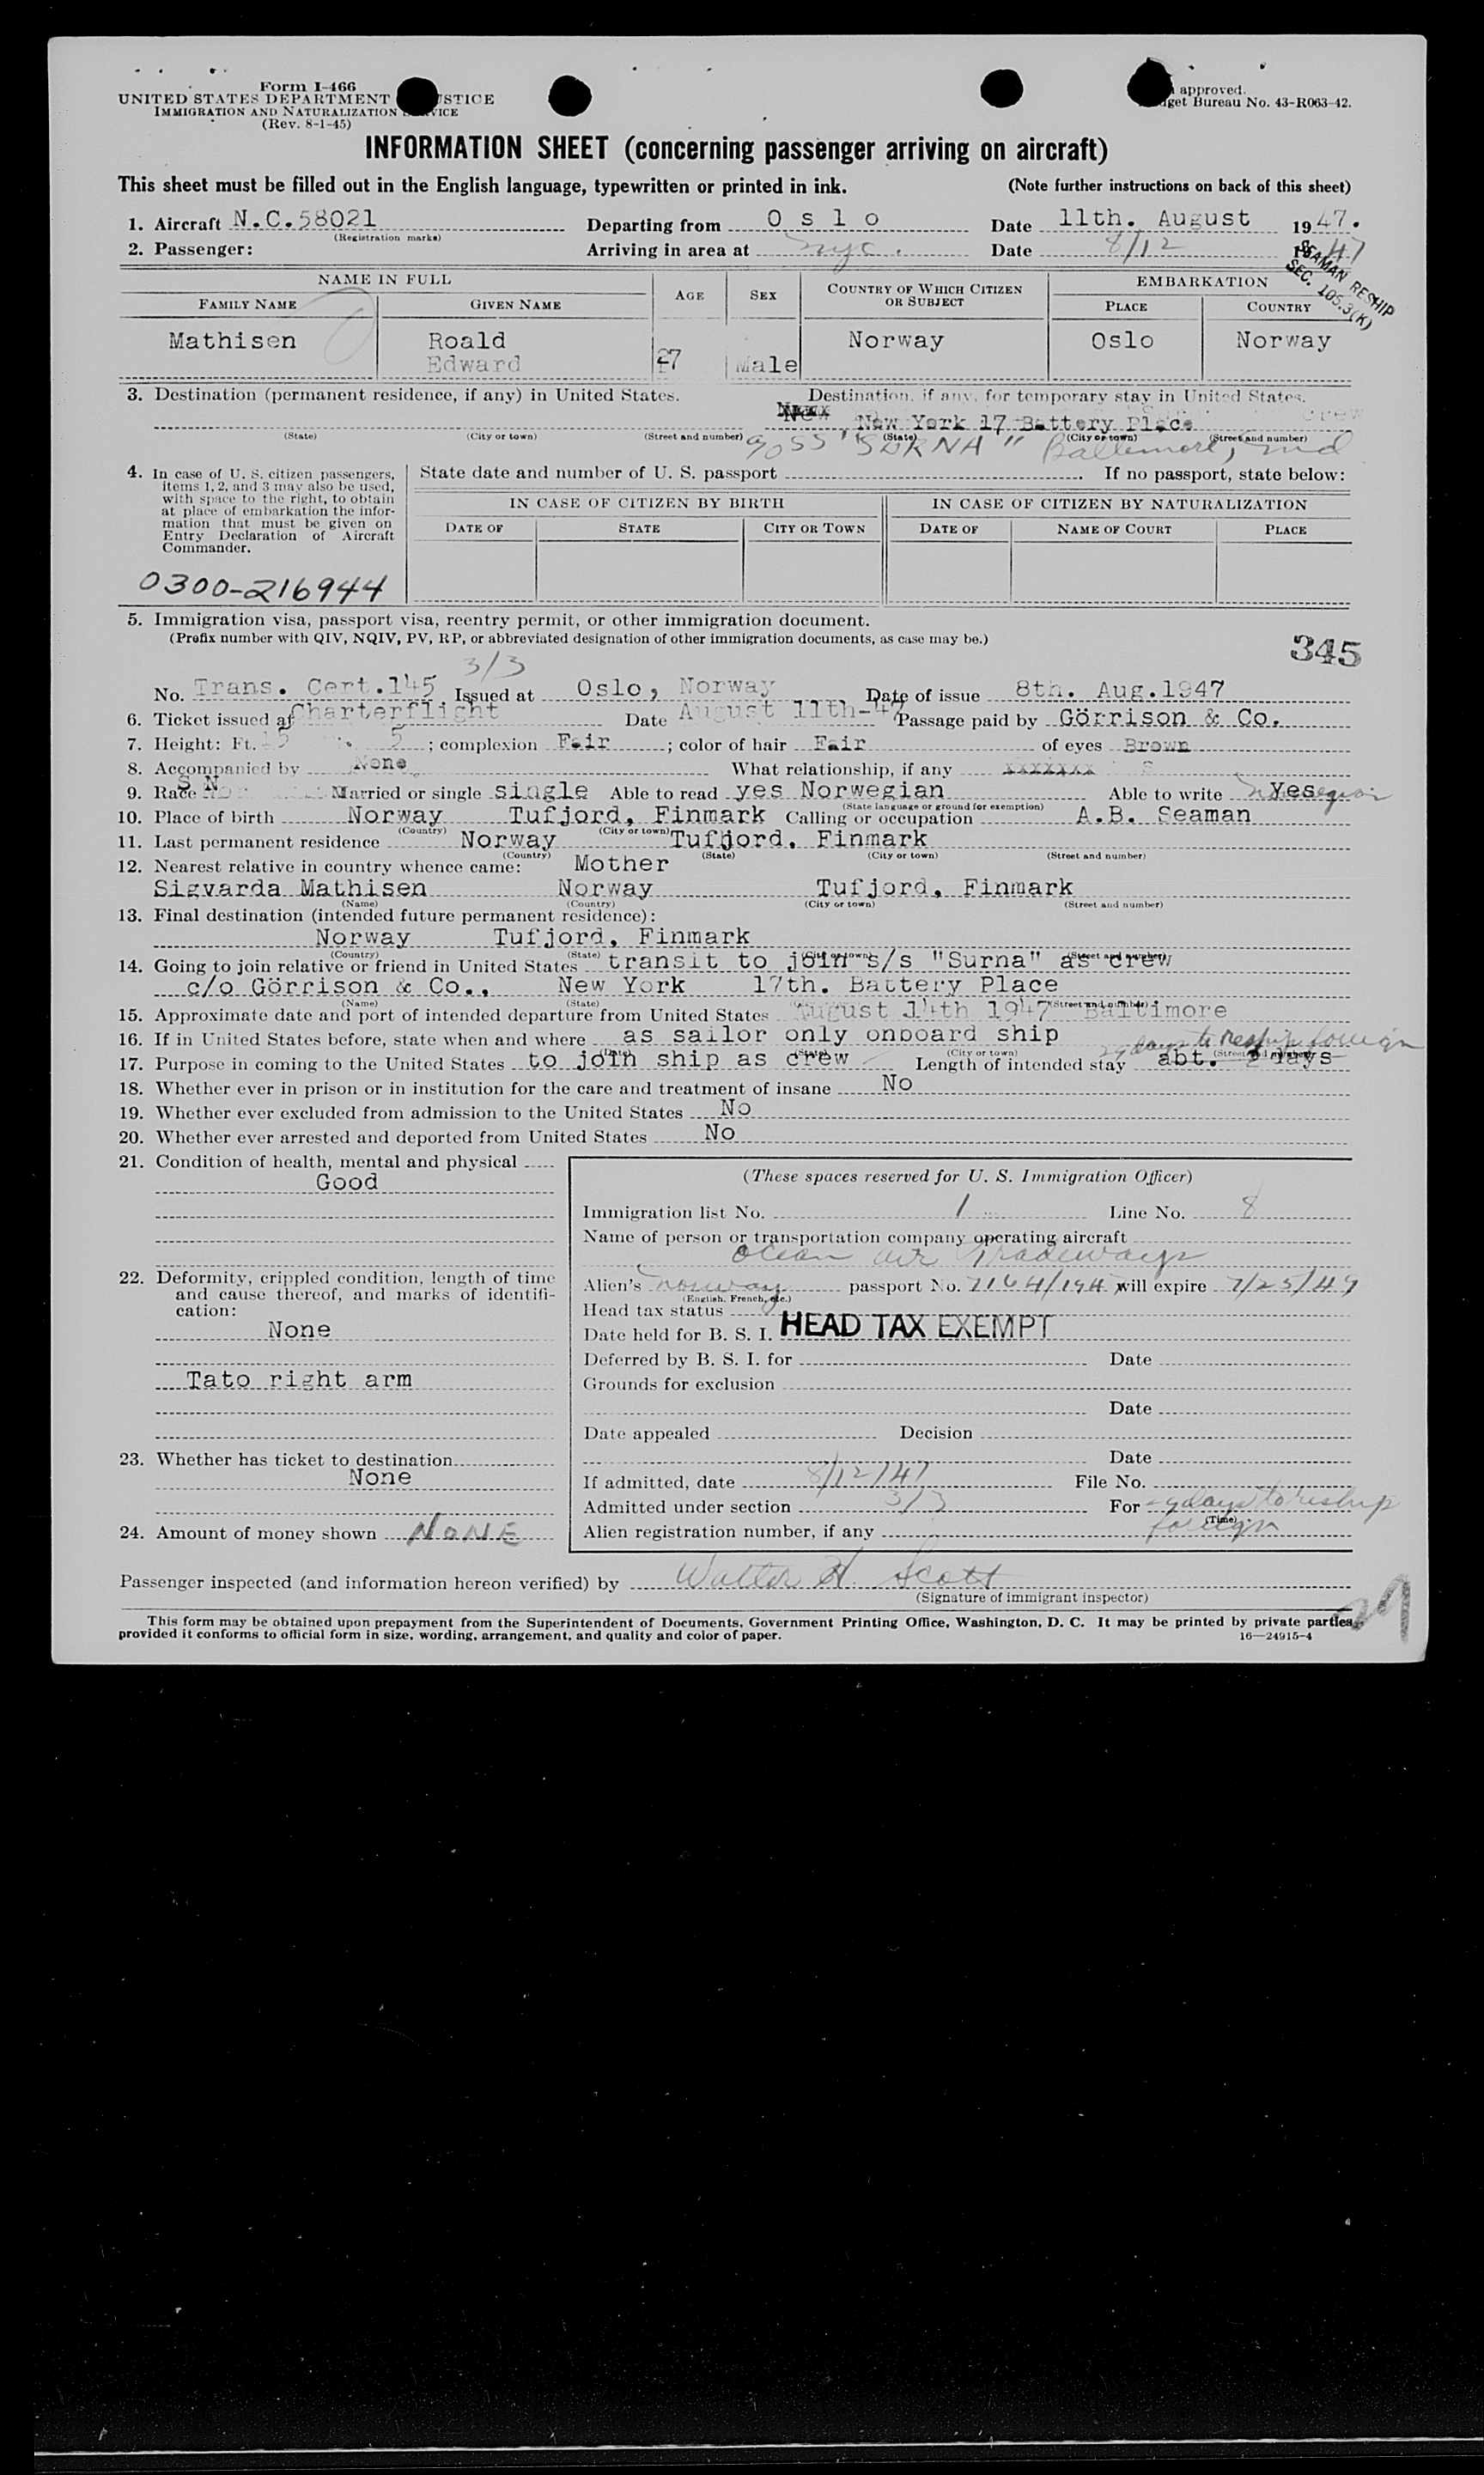 Form I-466
UNITED STATES DEPARTMENT STICE
IMMIGRATION AND NATURALIZATION VICE
(Rev. 8-1-45)
approved.
get Bureau No. 43-R063-42.
INFORMATION SHEET (concerning passenger arriving on aircraft)
This sheet must be filled out in the English language, typewritten or printed in ink. (Note further instructions on back of this sheet)
1. Aircraft N.C.58021 Departing from O s l o Date 11th. August 1947.
(Registration marks)
2. Passenger: Arriving in area at nyc. Date 8/12 1947
SEAMAN RESHIP
SEC. 105.3(K)
NAME IN FULL AGE SEX COUNTRY OF WHICH CITIZEN OR SUBJECT EMBARKATION
FAMILY NAME GIVEN NAME PLACE COUNTRY
Mathisen Roald Norway Oslo Norway
Edward 27 Male
3. Destination (permanent residence, if any) in United States. Destination, if any, for temporary stay in United States.
New York 17 Battery Place crew
(State) (City or town) (Street and number) (State) (City or town) (Street and number)
SS "SURNA" Baltimore, md
4. In case of U. S. citizen passengers, items 1, 2, and 3 may also be used, with space to the right, to obtain at place of embarkation the information that must be given on Entry Declaration of Aircraft Commander.
State date and number of U. S. passport . If no passport, state below:
IN CASE OF CITIZEN BY BIRTH IN CASE OF CITIZEN BY NATURALIZATION
DATE OF STATE CITY OR TOWN DATE OF NAME OF COURT PLACE
0300-216944
5. Immigration visa, passport visa, reentry permit, or other immigration document.
(Prefix number with QIV, NQIV, PV, RP, or abbreviated designation of other immigration documents, as case may be.)
345
3/3
No. Trans. Cert.145 Issued at Oslo, Norway Date of issue 8th. Aug.1947
6. Ticket issued at Charterflight Date August 11th-47 Passage paid by Görrison & Co.
7. Height: Ft. 5 5 ; complexion Fair ; color of hair Fair of eyes Brown
8. Accompanied by None What relationship, if any xxxxxxx
9. Race S N Married or single single Able to read yes Norwegian Able to write Yes
(State language or ground for exemption)
10. Place of birth Norway Tufjord, Finmark Calling or occupation A.B. Seaman
(Country) (City or town)
11. Last permanent residence Norway Tufjord, Finmark
(Country) (State) (City or town) (Street and number)
12. Nearest relative in country whence came: Mother
Sigvarda Mathisen Norway Tufjord, Finmark
(Name) (Country) (City or town) (Street and number)
13. Final destination (intended future permanent residence):
Norway Tufjord, Finmark
(Country) (State) (City or town) (Street and number)
14. Going to join relative or friend in United States transit to join s/s "Surna" as crew
c/o Görrison & Co., New York 17th. Battery Place
(Name) (State) (Street and number)
15. Approximate date and port of intended departure from United States August 14th 1947 Baltimore
16. If in United States before, state when and where as sailor only onboard ship
(Date) (State) (City or town) (Street and number)
29 days to Reship foreign
17. Purpose in coming to the United States to join ship as crew Length of intended stay abt. 2 days
18. Whether ever in prison or in institution for the care and treatment of insane No
19. Whether ever excluded from admission to the United States No
20. Whether ever arrested and deported from United States No
21. Condition of health, mental and physical
Good
22. Deformity, crippled condition, length of time and cause thereof, and marks of identification:
None
Tato right arm
23. Whether has ticket to destination
None
24. Amount of money shown NONE
(These spaces reserved for U. S. Immigration Officer)
Immigration list No. 1 Line No. 8
Name of person or transportation company operating aircraft
Ocean Air Tradeways
Alien's Norway passport No. 7164/194 will expire 7/25/49
(English, French, etc.)
Head tax status
HEAD TAX EXEMPT
Date held for B. S. I.
Deferred by B. S. I. for Date
Grounds for exclusion
Date
Date appealed Decision
Date
If admitted, date 8/12/47 File No.
Admitted under section 3/3 For 29 days to reship
(Time)
foreign
Alien registration number, if any
Passenger inspected (and information hereon verified) by Walter H Scott
(Signature of immigrant inspector)
This form may be obtained upon prepayment from the Superintendent of Documents, Government Printing Office, Washington, D. C. It may be printed by private parties,
provided it conforms to official form in size, wording, arrangement, and quality and color of paper. 16—24915-4